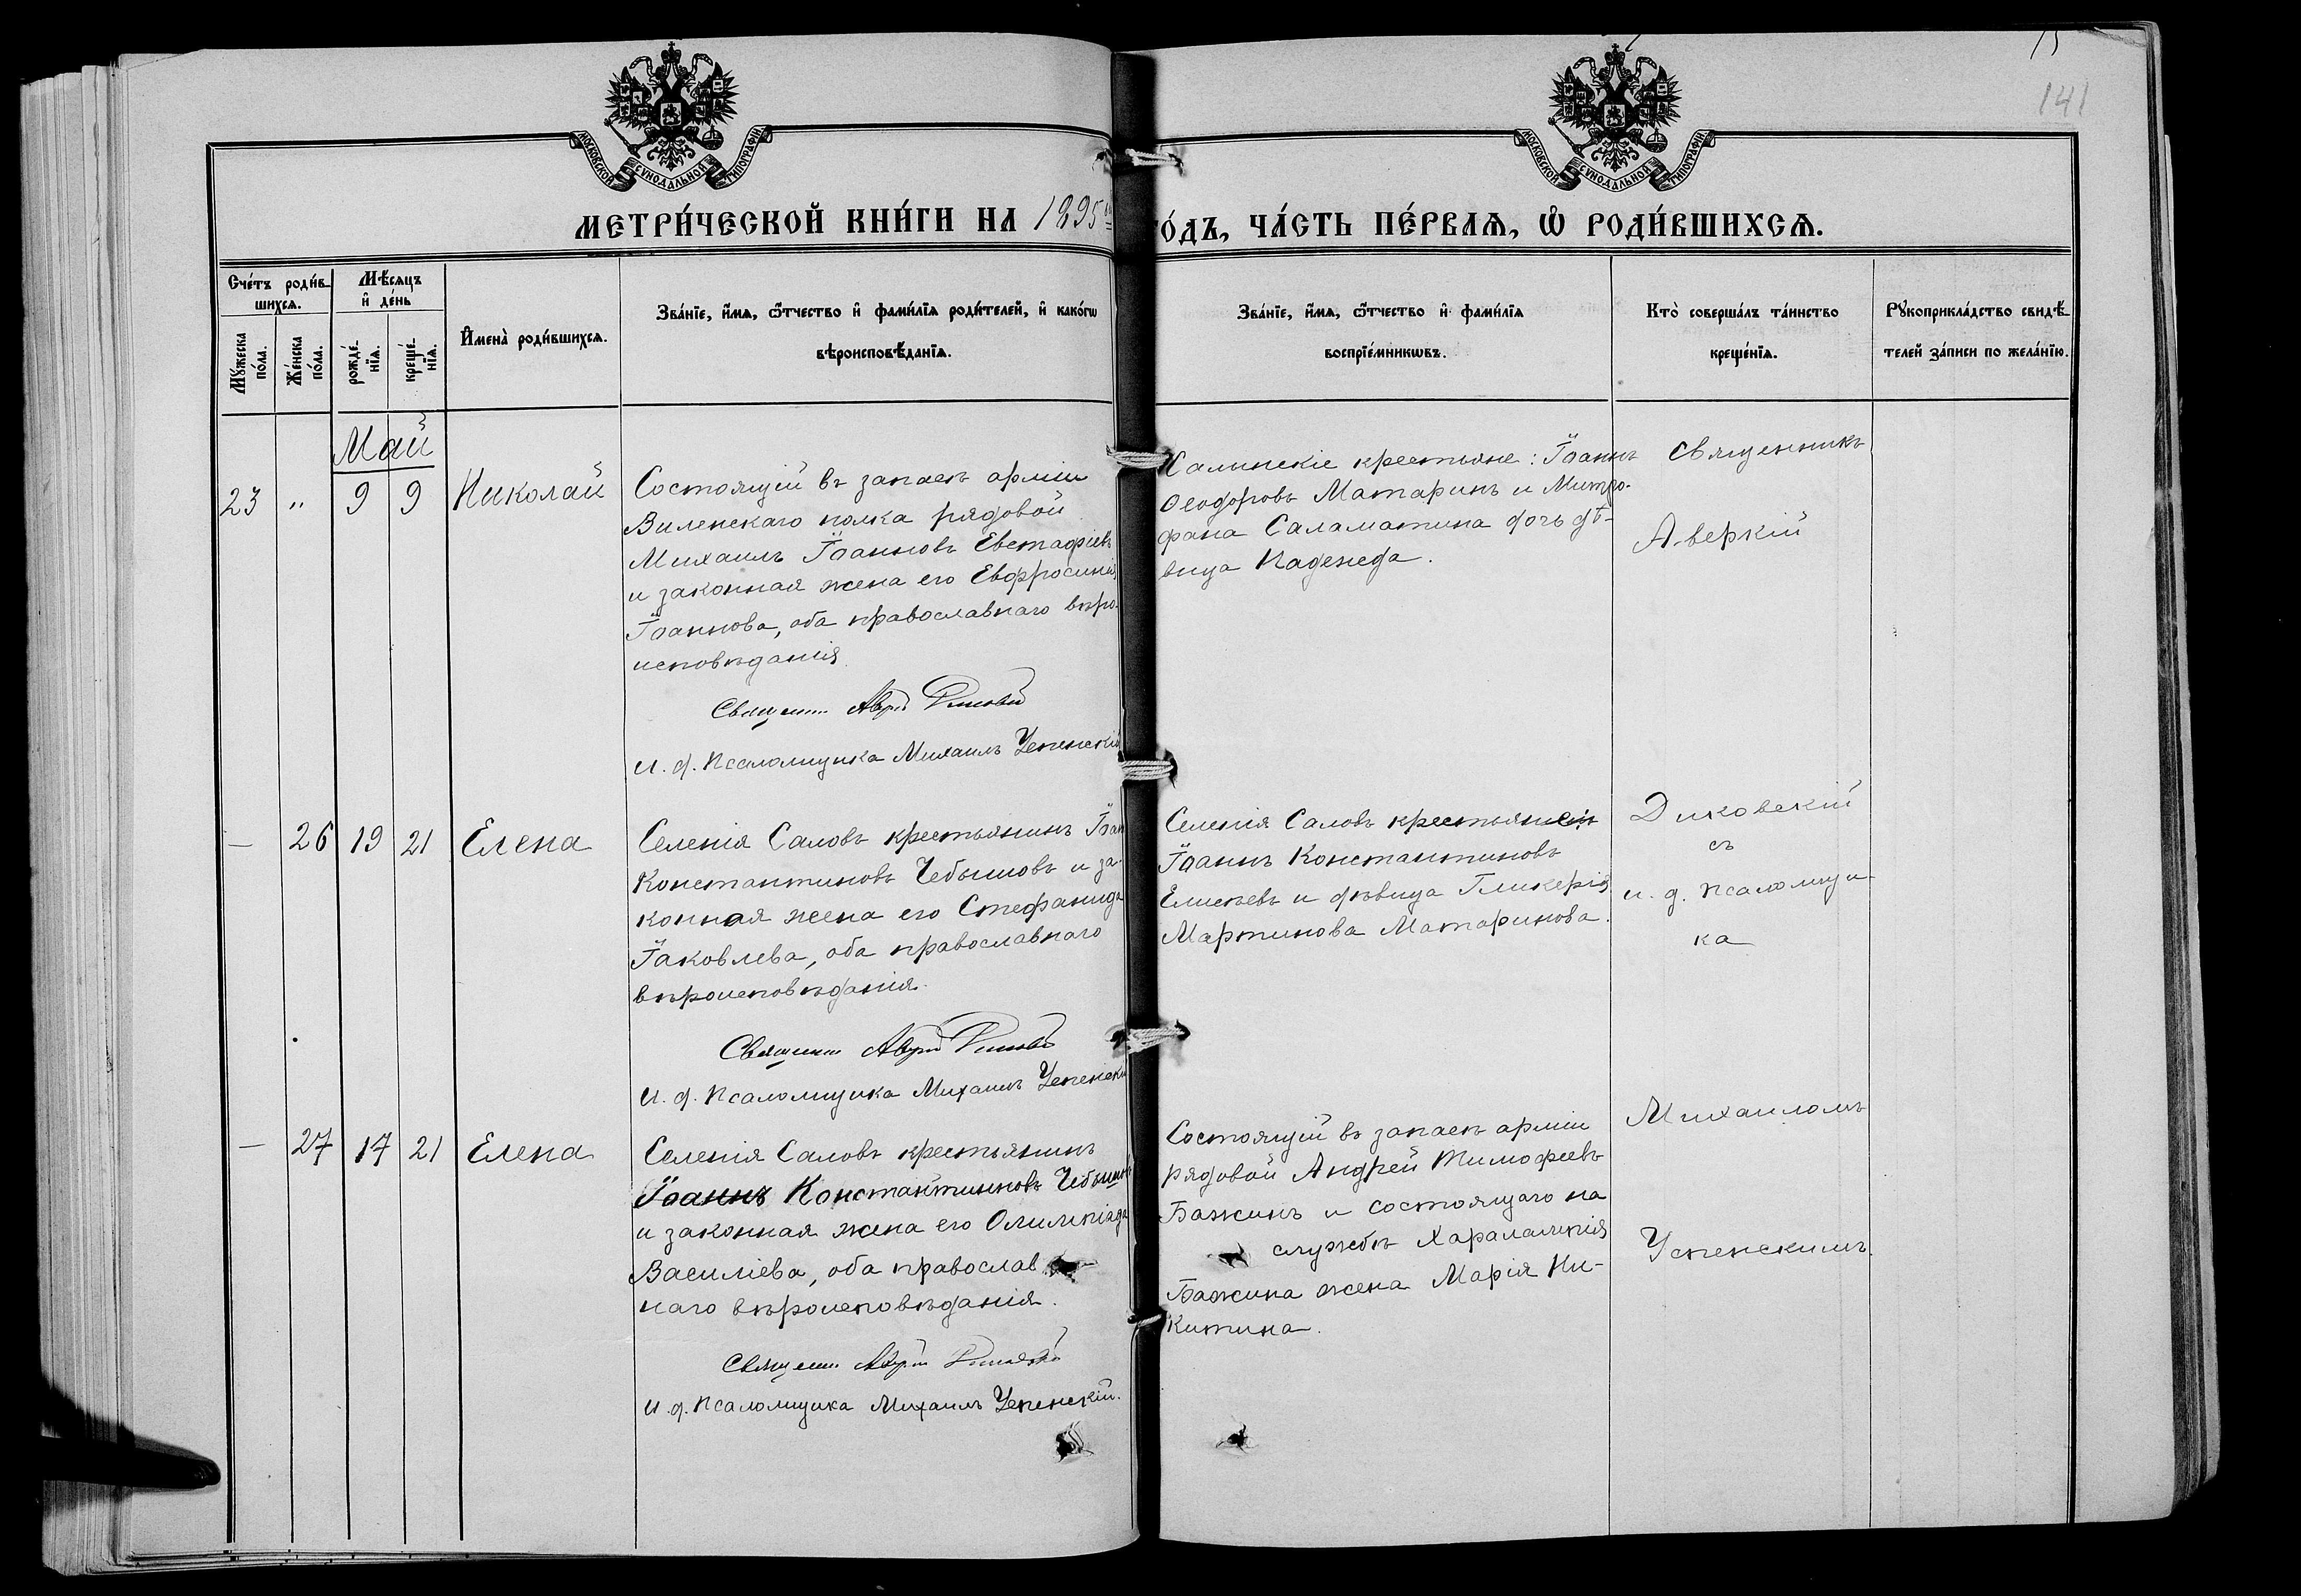 15
141
МОСКОВСКОЙ СѴНОДАЛЬНОЙ ТИПОГРАФІИ
МОСКОВСКОЙ СѴНОДАЛЬНОЙ ТИПОГРАФІИ
МЕТРИ́ЧЕСКОЙ КНИ́ГИ НА 1895
ГО́ДЪ, ЧА́СТЬ ПЕ́РВАѦ, Ѡ РОДИ́ВШИХСѦ.
Сче́тъ роди́в-
шихсѧ.
Мꙋ́жеска по́ла.
Же́нска по́ла.
Мѣ́сѧцъ
и де́нь
рожде́-нїѧ.
креще́-нїѧ.
Имена̀ роди́вшихсѧ.
Зва́нїе, и́мѧ, ѻ́тчество и фами́лїѧ роди́телей, и како́гѡ
вѣроисповѣ́данїѧ.
Зва́нїе, и́мѧ, ѻ́тчество и фами́лїѧ
воспрїе́мникѡвъ.
Кто̀ соверша́лъ та́инство
креще́нїѧ.
Рꙋкоприкла́дство свидѣ́-
телей за́писи по жела́нїю.
Май
23 " 9 9 Николай
Состоящій въ запасѣ арміи
Виленскаго полка рядовой
Михаилъ Іоанновъ Евстафіевъ
и законная жена его Евфросинія
Іоаннова, оба православнаго вѣро-
исповѣданія.
Священн. Аверкій Диковскій
И. д. Псаломщика Михаилъ Успенскій
Салинскіе крестьяне: Іоаннъ
Ѳеодоровъ Матаринъ и Митро-
фана Саламатина дочь дѣ-
вица Надежда.
Священникъ
Аверкій
— 26 19 21 Елена
Селенія Саловъ крестьянинъ Іоан
Константиновъ Чебышовъ и за-
конная жена его Стефанида
Іаковлева, оба православнаго
вѣроисповѣданія.
Священн. Аверкій Диковскій
И. д. Псаломщика Михаилъ Успенскі
Селенія Саловъ крестьянинъ
Іоаннъ Константиновъ
Елисѣевъ и дѣвица Гликерія
Мартинова Матаринова.
Диковскій
съ
и. д. псаломщи-
ка
— 27 17 21 Елена
Селенія Саловъ крестьянинъ
Іоаннъ Константиновъ Чебышовъ
и законная жена его Олимпіада
Василіева, оба православ-
наго вѣроисповѣданія.
Священн. Аверкій Диковскій
И. д. Псаломщика Михаилъ Успенскій.
Состоящій въ запасѣ арміи
рядовой Андрей Тимофеевъ
Бажинъ и состоящаго на
службѣ Харалампія
Бажина жена Марія Ни-
китина.
Михаиломъ
Успенскимъ.